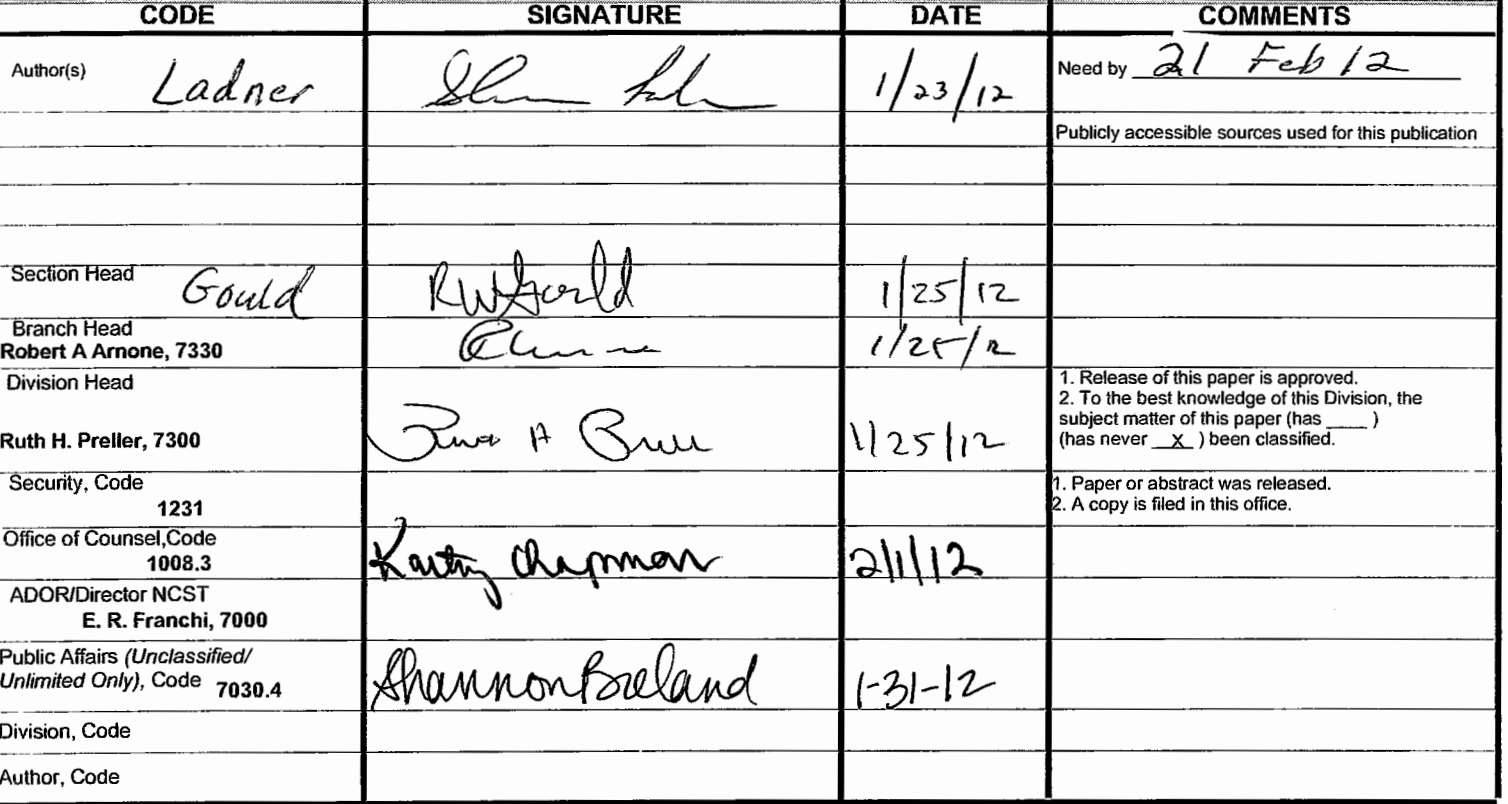 CODE SIGNATURE DATE COMMENTS
Author(s) Ladner 1/23/12 Need by 21 Feb 12
Publicly accessible sources used for this publication
Section Head Gould RWGould 1/25/12
Branch Head
Robert A Arnone, 7330 1/25/12
Division Head
Ruth H. Preller, 7300 1/25/12
1. Release of this paper is approved.
2. To the best knowledge of this Division, the
subject matter of this paper (has ____ )
(has never __X__ ) been classified.
Security, Code
1231
1. Paper or abstract was released.
2. A copy is filed in this office.
Office of Counsel,Code
1008.3 Kathy Chapman 2/1/12
ADOR/Director NCST
E. R. Franchi, 7000
Public Affairs (Unclassified/
Unlimited Only), Code 7030.4 Shannon Breland 1-31-12
Division, Code
Author, Code